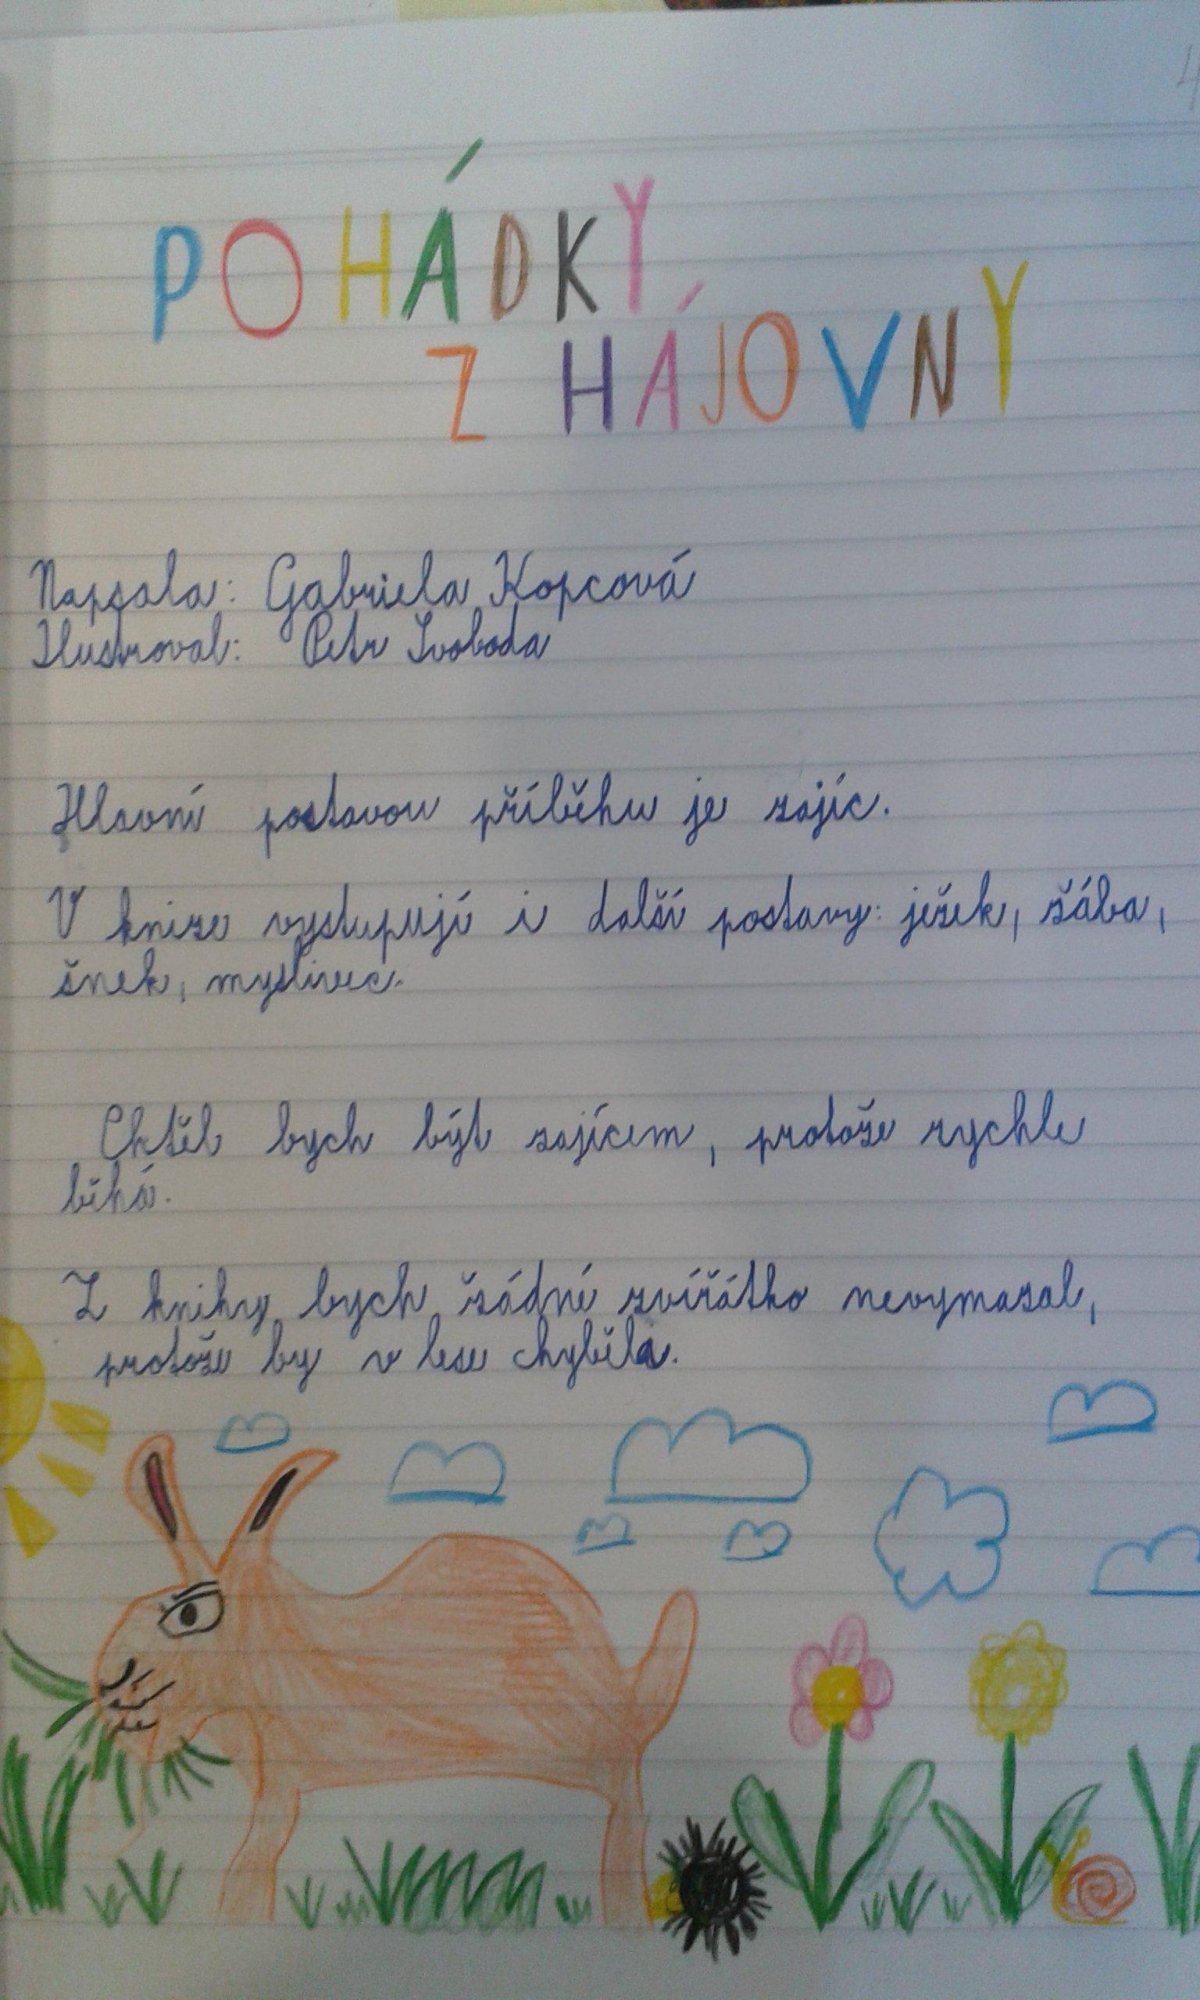 POHÁDKY
Z HÁJOVNY
Napsala: Gabriela Kopcová
Ilustroval: Petr Svoboda
Hlavní postavou příběhu je zajíc.
V knize vystupují i další postavy: ježek, žába,
šnek, myslivec.
Chtěl bych být zajícem, protože rychle
běhá.
Z knihy bych žádné zvířátko nevymazal,
protože by v lese chyběla.